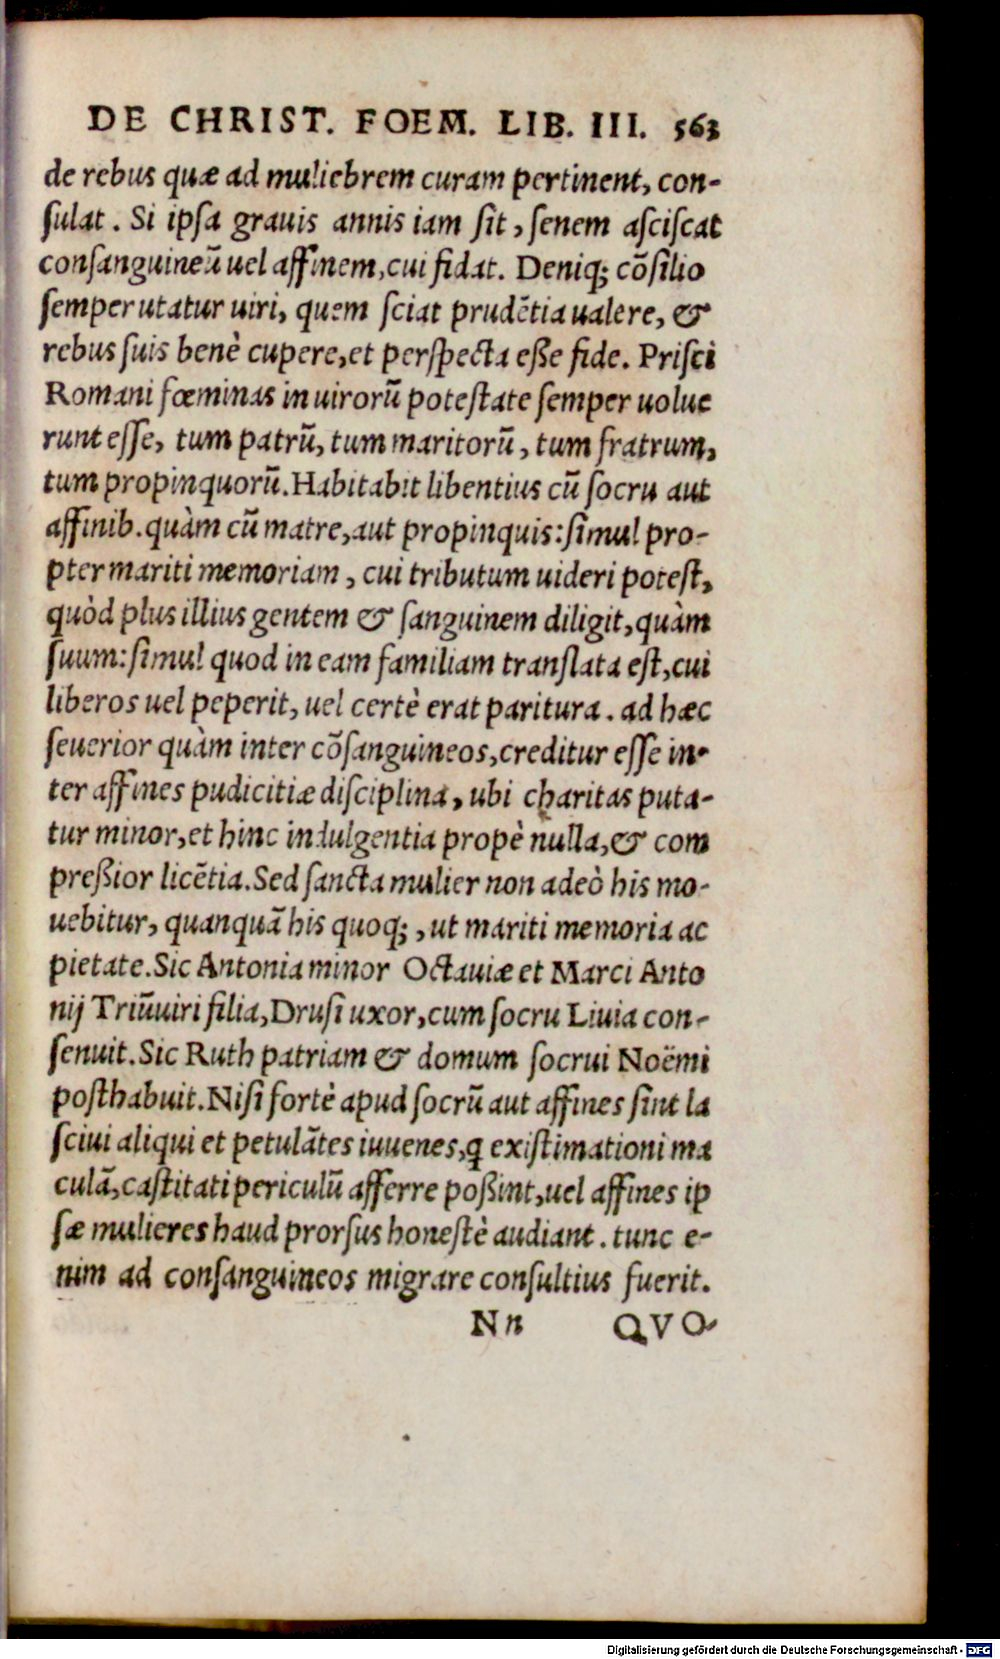 DE CHRIST. FOEM. LIB. III. 563
de rebus quæ ad muliebrem curam pertinent, con-
ſulat. Si ipſa grauis annis iam ſit, ſenem aſciſcat
conſanguineũ uel affinem, cui fidat. Deniq; cõſilio
ſemper utatur uiri, quem ſciat prudẽtia ualere, &
rebus ſuis benè cupere, et perſpecta eſſe fide. Priſci
Romani fœminas in uirorũ poteſtate ſemper uolue
runt eſſe, tum patrũ, tum maritorũ, tum fratrum,
tum propinquorũ. Habitabit libentius cũ ſocru aut
affinib. quàm cũ matre, aut propinquis: ſimul pro-
pter mariti memoriam, cui tributum uideri poteſt,
quòd plus illius gentem & ſanguinem diligit, quàm
ſuum: ſimul quod in eam familiam tranſlata eſt, cui
liberos uel peperit, uel certè erat paritura. ad hæc
ſeuerior quàm inter cõſanguineos, creditur eſſe in-
ter affines pudicitiæ diſciplina, ubi charitas puta-
tur minor, et hinc indulgentia propè nulla, & com
preßior licẽtia. Sed ſancta mulier non adeò his mo-
uebitur, quanquã his quoq;, ut mariti memoria ac
pietate. Sic Antonia minor Octauiæ et Marci Anto
nij Triũuiri filia, Druſi uxor, cum ſocru Liuia con-
ſenuit. Sic Ruth patriam & domum ſocrui Noëmi
poſthabuit. Niſi fortè apud ſocrũ aut affines ſint la
ſciui aliqui et petulãtes iuuenes, ꝗ exiſtimationi ma
culã, caſtitati periculũ afferre poßint, uel affines ip
ſæ mulieres haud prorſus honeſtè audiant. tunc e-
nim ad conſanguineos migrare conſultius fuerit.
Nn QVO-
Digitalisierung gefördert durch die Deutsche Forschungsgemeinschaft - DFG